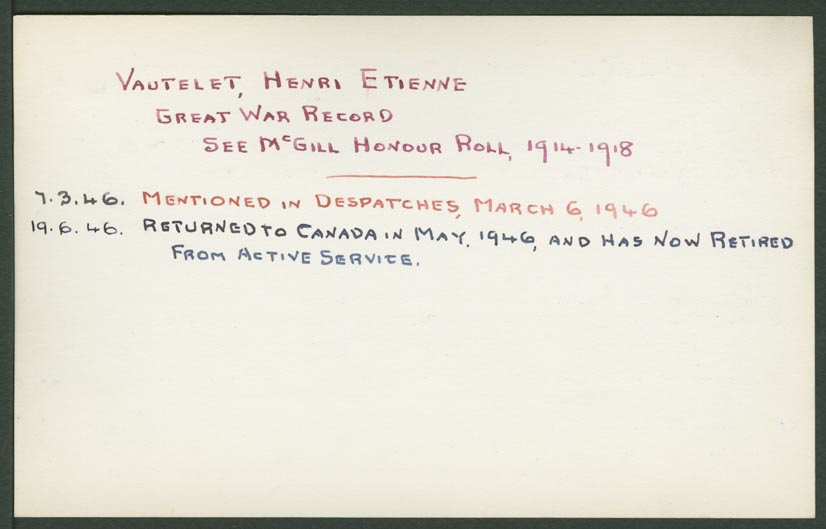 VAUTELET, HENRI ETIENNE
GREAT WAR RECORD
SEE McGILL HONOUR ROLL, 1914-1918
7.3.46. MENTIONED IN DESPATCHES, MARCH 6, 1946
19.6.46. RETURNED TO CANADA IN MAY, 1946, AND HAS NOW RETIRED
FROM ACTIVE SERVICE.